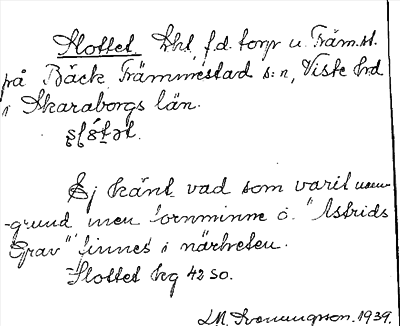 Slottet, Lht, f.d. torp u. Främ.st.
på Bäck, Främmestad s:n, Viste hrd
i Skaraborgs län.
Ej känt vad som varit namn-
-grund, men fornminne o. "Astrids
Grav" finnes i närheten.
Slottet hg 42 SO.
1939.